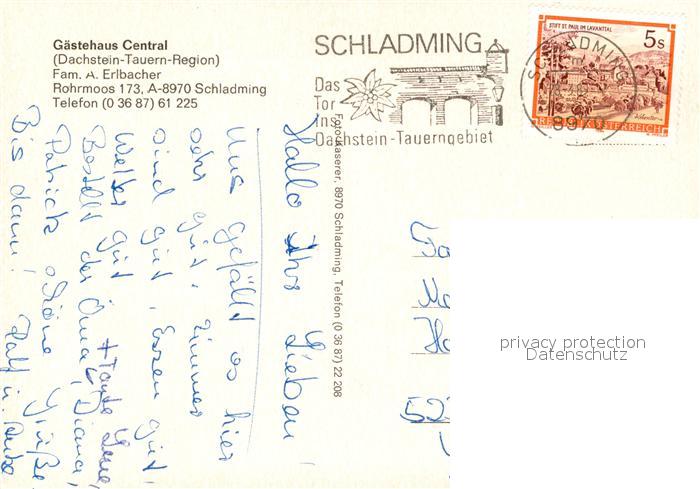 Gästehaus Central
(Dachstein-Tauern-Region)
Fam. A. Erlbacher
Rohrmoos 173, A-8970 Schladming
Telefon (0 36 87) 61 225
SCHLADMING
Das
Tor
ins
Dachstein-Tauerngebiet
STIFT ST. PAUL IM LAVANTTAL
5s
REPUBLIK ÖSTERREICH
SCHLADMING
8970
Foto Kaserer, 8970 Schladming, Telefon (0 36 87) 22 208
Hallo Ihr Lieben
Uns gefällt es hier
sehr gut, Zimmer
sind gut, Essen gut,
Wetter gut
+ Tante
Bestellt der Oma, Diana,
Patrick schöne Grüße
Bis dann!
Ralf u.
52
privacy protection
Datenschutz